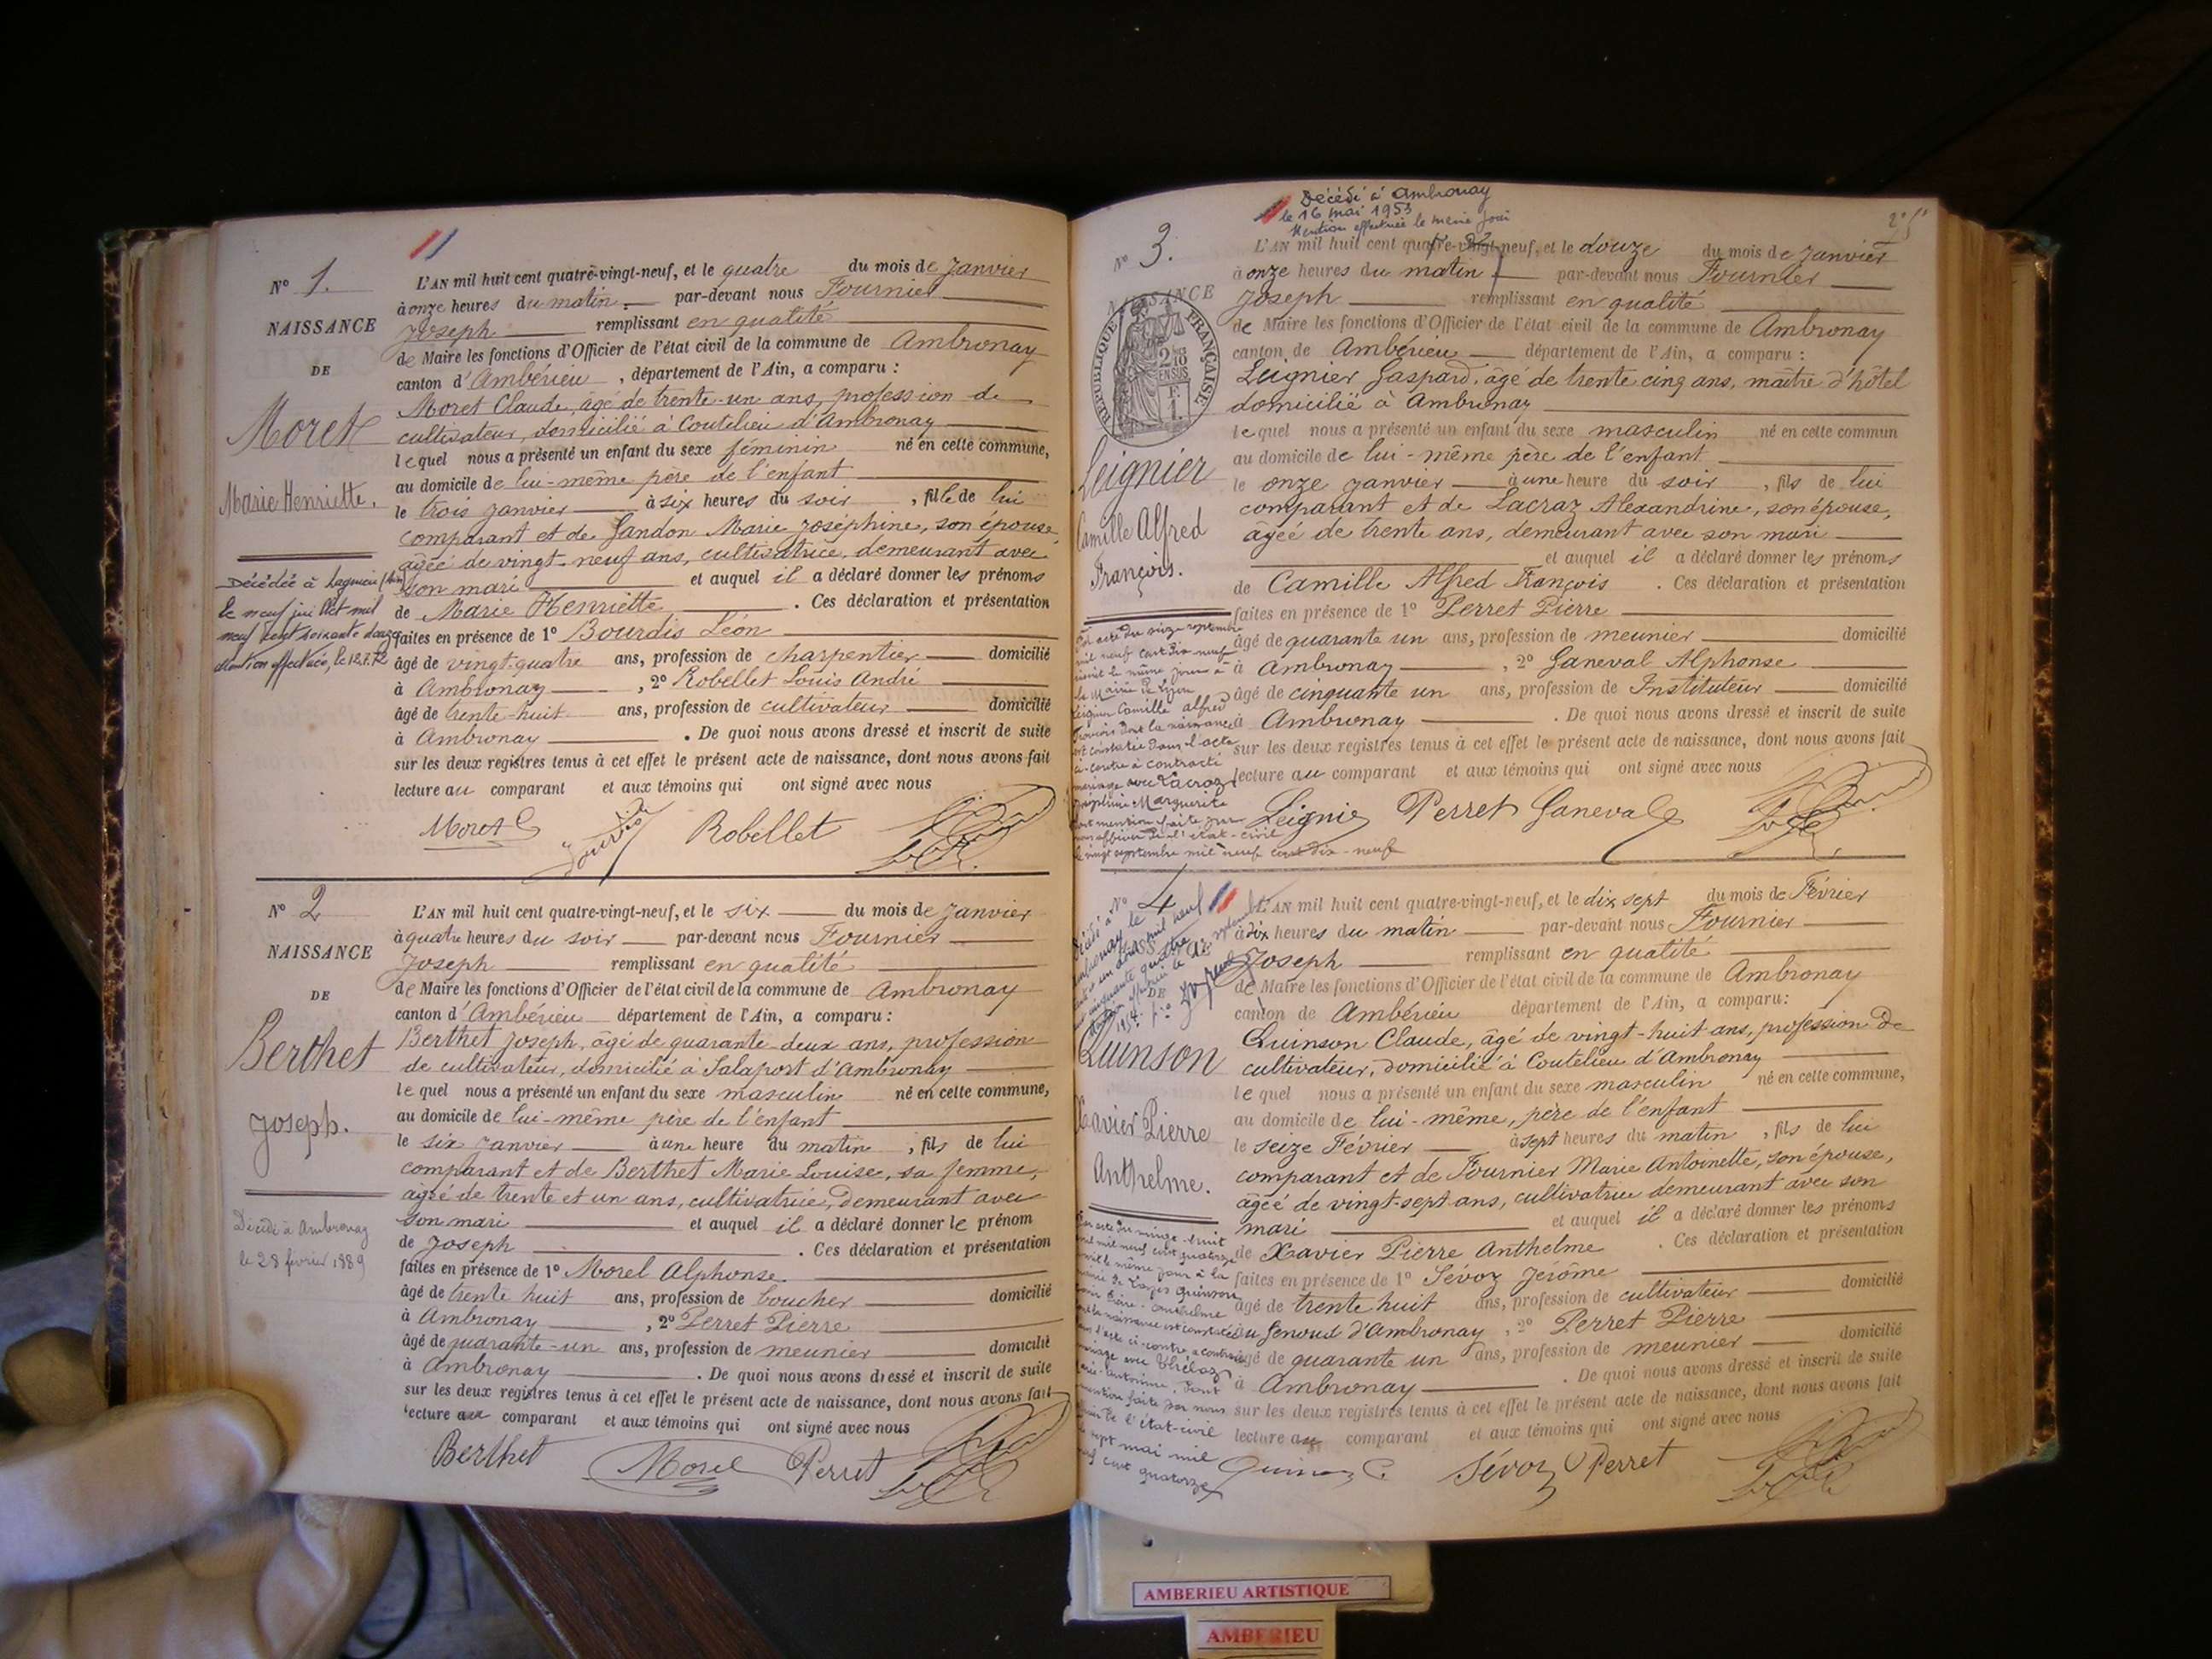 N° 1.
NAISSANCE
DE
Moret
Marie Henriette.
Décédée à Lagnieu (Ain)
le neuf juillet mil
neuf cent soixante douze
Mention effectuée, le 12.7.72
L'AN mil huit cent quatre-vingt-neuf, et le quatre du mois de Janvier
à onze heures du matin par-devant nous Fournier
Joseph remplissant en qualité
de Maire les fonctions d'Officier de l'état civil de la commune de Ambronay
canton d'Ambérieu, département de l'Ain, a comparu :
Moret Claude, âgé de trente-un ans, profession de
cultivateur, domicilié à Coutelieu d'Ambronay
lequel nous a présenté un enfant du sexe féminin né en cette commune,
au domicile de lui-même père de l'enfant
le trois Janvier à six heures du soir, fille de lui
comparant et de Gandon Marie Joséphine, son épouse,
âgée de vingt-neuf ans, cultivatrice, demeurant avec
son mari et auquel il a déclaré donner les prénoms
de Marie Henriette. Ces déclaration et présentation
faites en présence de 1° Bourdis Léon
âgé de vingt-quatre ans, profession de charpentier domicilié
à Ambronay, 2° Robellet Louis André
âgé de trente-huit ans, profession de cultivateur domicilié
à Ambronay. De quoi nous avons dressé et inscrit de suite
sur les deux registres tenus à cet effet le présent acte de naissance, dont nous avons fait
lecture au comparant et aux témoins qui ont signé avec nous
Moret C Robellet
N° 2
NAISSANCE
DE
Berthet
Joseph.
Décédé à Ambronay
le 28 février 1889
L'AN mil huit cent quatre-vingt-neuf, et le six du mois de Janvier
à quatre heures du soir par-devant nous Fournier
Joseph remplissant en qualité
de Maire les fonctions d'Officier de l'état civil de la commune de Ambronay
canton d'Ambérieu département de l'Ain, a comparu :
Berthet Joseph, âgé de quarante-deux ans, profession
de cultivateur, domicilié à Salaport d'Ambronay
lequel nous a présenté un enfant du sexe masculin né en cette commune,
au domicile de lui-même père de l'enfant
le six Janvier à une heure du matin, fils de lui
comparant et de Berthet Marie Louise, sa femme,
âgée de trente et un ans, cultivatrice, demeurant avec
son mari et auquel il a déclaré donner le prénom
de Joseph. Ces déclaration et présentation
faites en présence de 1° Morel Alphonse
âgé de trente huit ans, profession de boucher domicilié
à Ambronay, 2° Perret Pierre
âgé de quarante-un ans, profession de meunier domicilié
à Ambronay. De quoi nous avons dressé et inscrit de suite
sur les deux registres tenus à cet effet le présent acte de naissance, dont nous avons fait
lecture au comparant et aux témoins qui ont signé avec nous
Berthet Morel Perret
Décédé à Ambronay
le 16 mai 1953
Mention effectuée le même jour
N° 3.
NAISSANCE
RÉPUBLIQUE FRANÇAISE
Leignier
Camille Alfred
François.
Par acte du vingt septembre
mil neuf cent dix neuf
inscrit le même jour à
la Mairie de Lyon
Leignier Camille Alfred
François dont la naissance
est constatée dans l'acte
ci-contre à contracté
mariage avec Lacraz
Joséphine Marguerite
dont mention faite par
nous officier de l'état-civil
le vingt septembre mil neuf cent dix-neuf
L'AN mil huit cent quatre-vingt-neuf, et le douze du mois de Janvier
à onze heures du matin par-devant nous Fournier
Joseph remplissant en qualité
de Maire les fonctions d'Officier de l'état civil de la commune de Ambronay
canton de Ambérieu département de l'Ain, a comparu :
Leignier Gaspard, âgé de trente cinq ans, maître d'hôtel
domicilié à Ambronay
lequel nous a présenté un enfant du sexe masculin né en cette commun
au domicile de lui-même père de l'enfant
le onze Janvier à une heure du soir, fils de lui
comparant et de Lacraz Alexandrine, son épouse,
âgée de trente ans, demeurant avec son mari
et auquel il a déclaré donner les prénoms
de Camille Alfred François. Ces déclaration et présentation
faites en présence de 1° Perret Pierre
âgé de quarante un ans, profession de meunier domicilié
à Ambronay, 2° Ganeval Alphonse
âgé de cinquante un ans, profession de Instituteur domicilié
à Ambronay. De quoi nous avons dressé et inscrit de suite
sur les deux registres tenus à cet effet le présent acte de naissance, dont nous avons fait
lecture au comparant et aux témoins qui ont signé avec nous
Leignier Perret Ganeval
N° 4
DE
Quinson
Xavier Pierre
Anthelme.
L'AN mil huit cent quatre-vingt-neuf, et le dix sept du mois de Février
à dix heures du matin par-devant nous Fournier
Joseph remplissant en qualité
de Maire les fonctions d'Officier de l'état civil de la commune de Ambronay
canton de Ambérieu département de l'Ain, a comparu:
Quinson Claude, âgé de vingt-huit ans, profession de
cultivateur, domicilié à Coutelieu d'Ambronay
lequel nous a présenté un enfant du sexe masculin né en cette commune,
au domicile de lui-même, père de l'enfant
le seize Février à sept heures du matin, fils de lui
comparant et de Fournier Marie Antoinette, son épouse,
âgée de vingt-sept ans, cultivatrice demeurant avec son
mari et auquel il a déclaré donner les prénoms
de Xavier Pierre Anthelme. Ces déclaration et présentation
faites en présence de 1° Sévoz Jérôme
âgé de trente huit ans, profession de cultivateur domicilié
au Genoud d'Ambronay, 2° Perret Pierre
âgé de quarante un ans, profession de meunier domicilié
à Ambronay. De quoi nous avons dressé et inscrit de suite
sur les deux registres tenus à cet effet le présent acte de naissance, dont nous avons fait
lecture au comparant et aux témoins qui ont signé avec nous
Quinson C. Sévoz Perret
AMBERIEU ARTISTIQUE
AMBERIEU